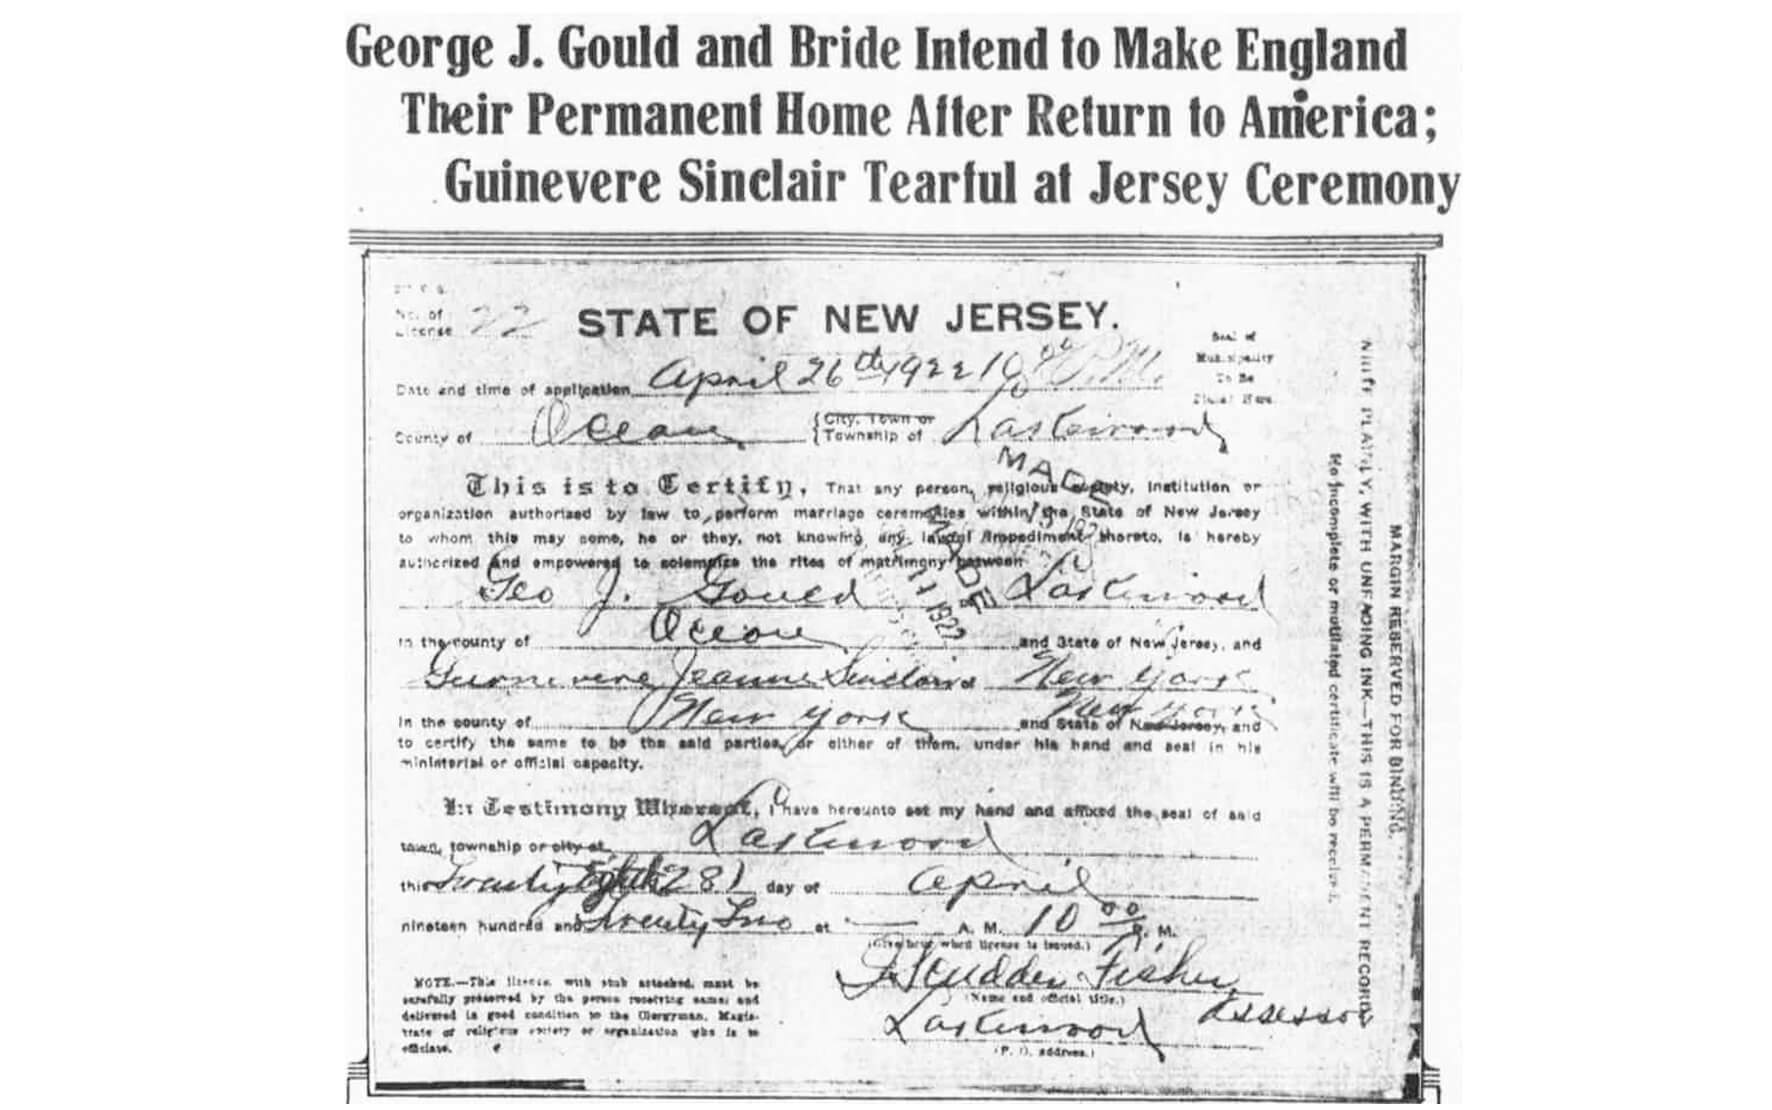 George J. Gould and Bride Intend to Make England
Their Permanent Home After Return to America;
Guinevere Sinclair Tearful at Jersey Ceremony
No. of
License 22
STATE OF NEW JERSEY.
Seal of
Municipality
To Be
Placed Here.
Date and time of application April 26th 1922 10 00 P.M.
County of Ocean {City, Town or
{Township of Lakewood
This is to Certify, That any person, religious society, institution or
organization authorized by law to perform marriage ceremonies within the State of New Jersey
to whom this may come, he or they, not knowing any lawful impediment thereto, is hereby
authorized and empowered to solemnize the rites of matrimony between
Geo J. Gould Lakewood
in the county of Ocean and State of New Jersey, and
Guinevere Jeanne Sinclair New York
in the county of New York and State of New Jersey, and New York
to certify the same to be the said parties, or either of them, under his hand and seal in his
ministerial or official capacity.
In Testimony Whereof, I have hereunto set my hand and affixed the seal of said
town, township or city at Lakewood
this Twenty Eighth 28) day of April
nineteen hundred and Twenty Two at A. M. 10 00 P. M.
(Give hour when license is issued.)
Scudder Fisher,
(Name and official title.) Assessor
Lakewood
(P. O. address.)
NOTE.—This license, with stub attached, must be
carefully preserved by the person receiving same; and
delivered in good condition to the Clergyman, Magis-
trate or religious society or organization who is to
officiate.
MADE
MADE
1922
WRITE PLAINLY, WITH UNFADING INK—THIS IS A PERMANENT RECORD
No incomplete or mutilated certificate will be received.
MARGIN RESERVED FOR BINDING.